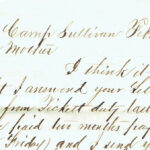 Camp Sullivan Feb
Mother
I think it
I answered your let
from Picket duty last
paid two months pay
Friday) and I send y